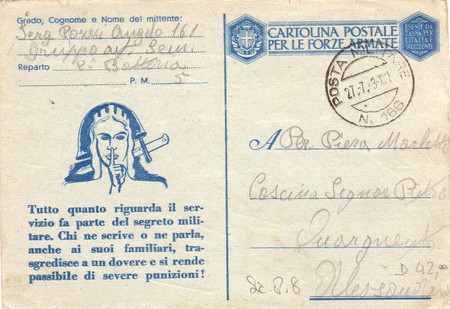 Grado, Cognome e Nome del mittente:
Angelo 161
Reparto 2ª Batteria
P. M. 5
Tutto quanto riguarda il ser-
vizio fa parte del segreto mili-
tare. Chi ne scrive o ne parla,
anche ai suoi familiari, tra-
sgredisce a un dovere e si rende
passibile di severe punizioni!
CARTOLINA POSTALE
PER LE FORZE ARMATE
ESENTE DA
TASSA PER
L'ITALIA E
POSTA MILITARE
N. 166
A Per Piera
Cascina
Quargnento
Alessandria
D 42,00